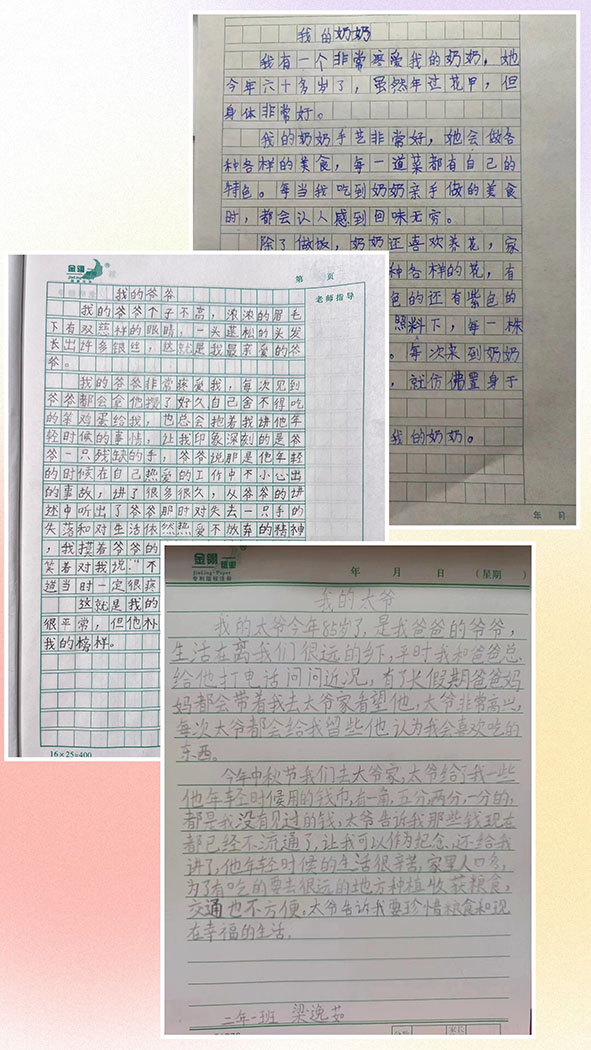 我的奶奶
我有一个非常疼爱我的奶奶，她
今年六十多岁了，虽然年过花甲，但
身体非常好。
我的奶奶手艺非常好，她会做各
种各样的美食，每一道菜都有自己的
特色。每当我吃到奶奶亲手做的美食
时，都会认人感到回味无穷。
除了做饭，奶奶还喜欢养花，家
种各样的花，有
色的还有紫色的
照料下，每一株
。每次来到奶奶
，就仿佛置身于
我的奶奶。
年 月
金翎
第 页
老师指导
我的爷爷
我的爷爷个子不高，浓浓的眉毛
下有双慈祥的眼睛，一头蓬松的头发
长出许多银丝，这就是我最亲爱的爷
爷。
我的爷爷非常疼爱我，每次见到
爷爷都会拿他攒了好久自己舍不得吃
的笨鸡蛋给我，也总会抱着我讲他年
轻时候的事情，让我印象深刻的是爷
爷一只残缺的手，爷爷说那是他年轻
的时候在自己热爱的工作中不小心出
的事故，讲了很多很久，从爷爷的讲
述中听出了爷爷那时对失去一只手的
失落和对生活依然热爱不放弃的精神
，我摸着爷爷的
笑着对我说“不
道当时一定很疼
这就是我的
很平常，但他朴
我的榜样。
16×25=400
金翎纸业
JinLing Paper
专利版权注册
年 月 日 （星期 ）
我的太爷
我的太爷今年85岁了，是我爸爸的爷爷，
生活在离我们很远的乡下，平时我和爸爸总
给他打电话问问近况，有了长假期爸爸妈
妈都会带着我去太爷家看望他，太爷非常高兴，
每次太爷都会给我留些他认为我会喜欢吃的
东西。
今年中秋节我们去太爷家，太爷给了我一些
他年轻时候用的钱币，有一角，五分，两分，一分的，
都是我没有见过的钱，太爷告诉我那些钱现在
都已经不流通了，让我可以作为纪念，还给我
讲了，他年轻时候的生活很辛苦，家里人口多，
为了有吃的要去很远的地方种植收获粮食，
交通也不方便。太爷告诉我要珍惜粮食和现
在幸福的生活。
二年一班 梁逸茹